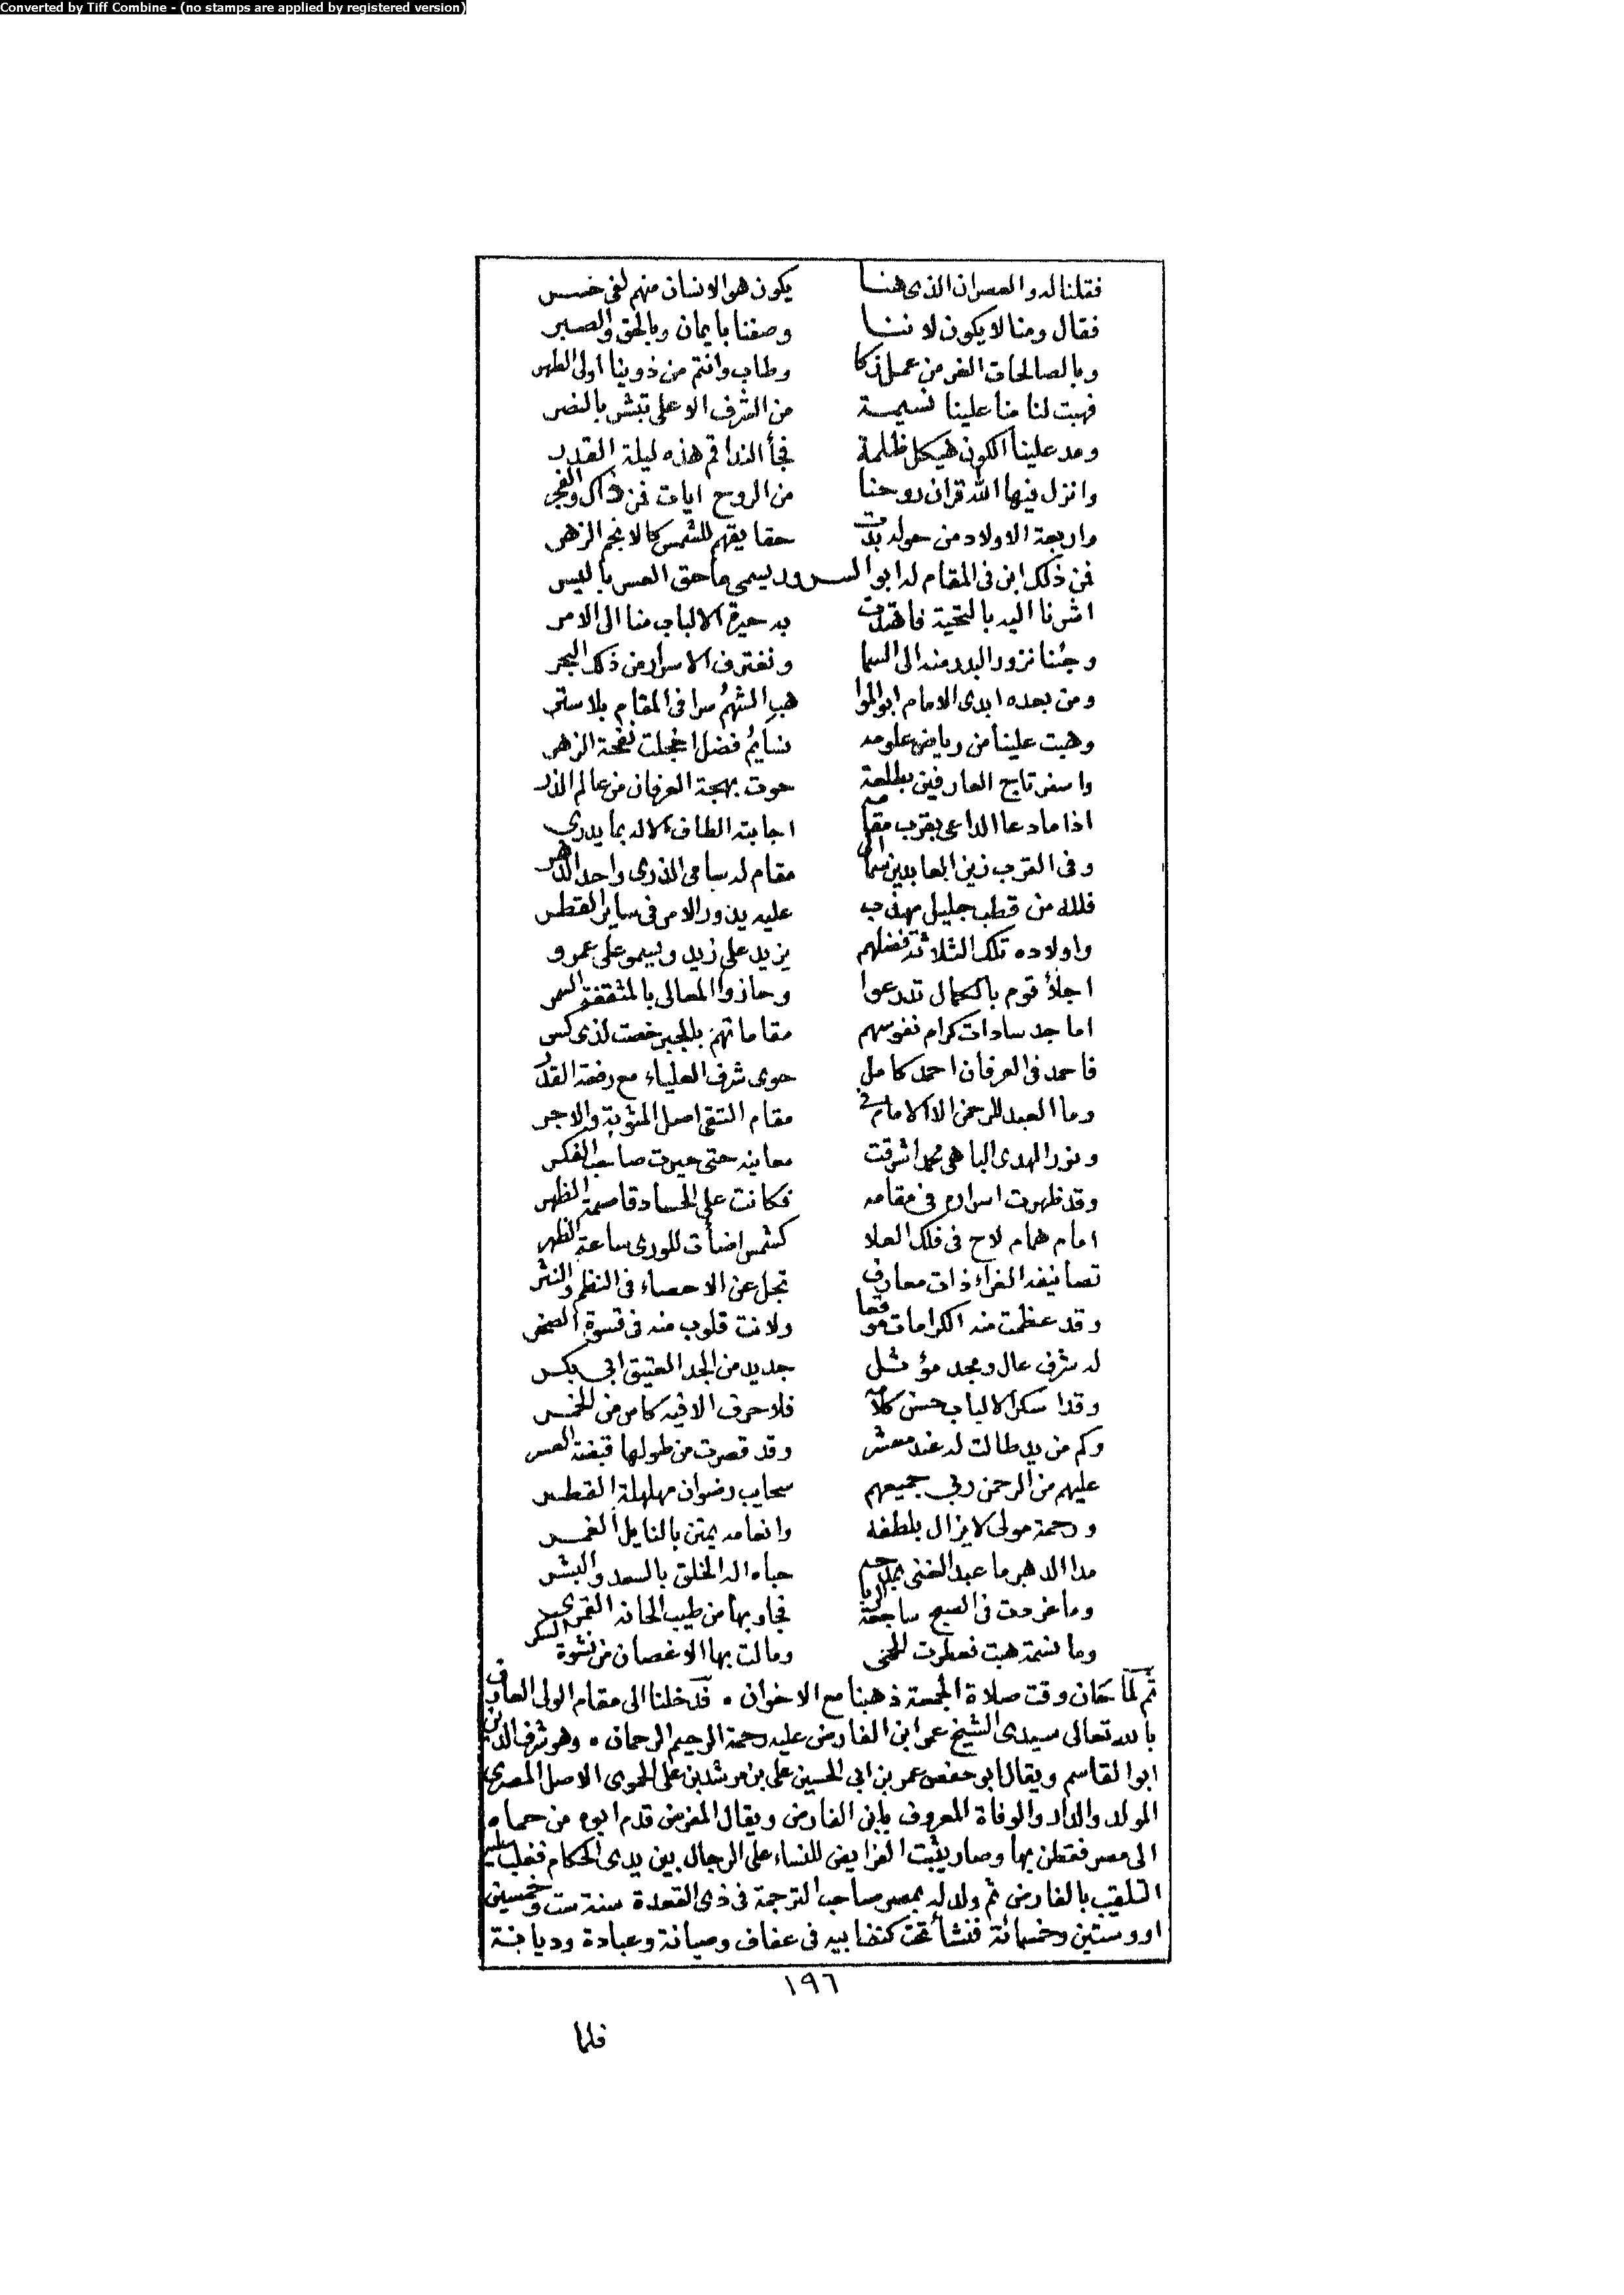 Converted by Tiff Combine - (no stamps are applied by registered version)
فقلنا له والعصر ان الذي هنا يكون هو الانسان منهم لفي خسر
فقال ومنا لا يكون لاننا وصفنا بايمان وبالحق والصبر
وبالصالحات الغر من عمل زكا وطاب وانتم من ذوينا اولى الطهر
فهبت لنا منا علينا نسيمة من الشرف الاعلى تبشر بالنصر
ومد علينا الكون هيكل ظلمة فجأ الندا قم هذه ليلة القدر
وانزل فيها الله قران روحنا من الروح ايات فمن ذاك والفجر
واربعة الاولاد من حوله بدت حقايقهم للشمس كالانجم الزهر
فمن ذلك ابن في المقام له ابو السرور يسمى ماحق العسر باليسر
اشرنا اليه بالتحية فاهتدت به حيرة الالباب منا الى الامر
وجئنا نزور البدر منه الى السما ونغترف الاسرار من ذلك البحر
ومن بعده ابدى الامام ابو الموا هب الشهم سرا في المقام بلا ستر
وهبت علينا من رياض علومه نسايم فضل اخجلت نفحة الزهر
واسفر تاج العارفين بطلعة حوت بهجة العرفان من عالم الذر
اذا ما دعا الداعي بقرب مقامه اجابته الطاف الاله بما يدري
وفي القرب زين العابدين سما الى مقام له سامي الذرى واحد الدهر
فلله من قطب جليل مهذب عليه يدور الامر في ساير القطر
واولاده تلك الثلاثة فضلهم يزيد على زيد ويسمو على عمرو
اجلأ قوم بالكمال تدرعوا وحازوا المعالى بالمثقفة السمر
اماجد سادات كرام نفوسهم مقاماتهم بالجبر خصت لذى كسر
فاحمد في العرفان احمد كامل حوى شرف العلياء مع رفعة القدر
وما العبد للرحمن الا الامام في مقام التقى اصل المثوبة والاجر
ونور الهدى الباهي محمد اشرقت معانيه حتى حيرت صاحب الفكر
وقد ظهرت اسراره في مقامه فكانت على الحساد قاصمة الظهر
امام همام لاح في فلك العلا كشمس اضأت للورى ساعة الظهر
تصانيفه الغراء ذات معارف تجل عن الاحصاء في النظم والنثر
وقد عظمت منه الكرامات موقعا ولانت قلوب منه في قسوة الصخر
له شرف عال ومجد مؤثل جديد من الجد العتيق ابي بكر
وقد اسكر الالباب حسن كلامه فلا حرف الا فيه كاس من الخمر
وكم من يد طالت له عند معشر وقد قصرت من طولها قبضة العسر
عليهم من الرحمن ربي جميعهم سحايب رضوان مهلهلة القطر
ورحمة مولى لا يزال بلطفه وانعامه يمتن بالنايل الغمر
مدا الدهر ما عبد الغني بمدحهم حباه اله الخلق بالسعد والبشر
وما غردت في الصبح ساجعة الربا فجاوبها من طيب الحانه القمري
وما نسمة هبت فعطرت الحمى ومالت بها الاغصان من نشوة السكر
ثم لما حان وقت صلاة الجمعة ذهبنا مع الاخوان . فدخلنا الى مقام الولى العارف
بالله تعالى سيدى الشيخ عمر ابن الفارض عليه رحمة الرحيم الرحمان . وهو شرف الدين
ابو القاسم ويقال ابو حفص عمر بن ابي الحسين علي بن مرشد بن على الحموى الاصل المصرى
المولد والدار والوفاة المعروف بابن الفارض ويقال المفرض قدم ابوه من حماه
الى مصر فقطن بها وصار يثبت الفرايض للنساء على الرجال بين يدى الحكام فغلب عليه
التلقيب بالفارض ثم ولد له بمصر صاحب الترجمة في ذى القعدة سنة ست وخمسين
او وستين وخمسمائة فنشأ تحت كنف ابيه في عفاف وصيانة وعبادة وديانة
١٩٦
فلما